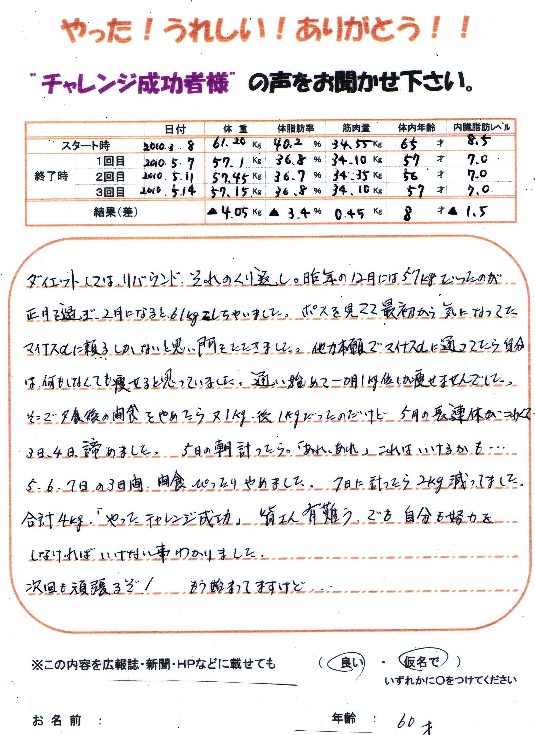 やった！うれしい！ありがとう！！
"チャレンジ成功者様" の声をお聞かせ下さい。
日付 体 重 体脂肪率 筋肉量 体内年齢 内臓脂肪レベル
スタート時 2010.3.8 61.20 Kg 40.2 % 34.55 Kg 65 才 8.5
1回目 2010.5.7 57.1 Kg 36.8 % 34.10 Kg 57 才 7.0
終了時 2回目 2010.5.11 57.45 Kg 36.7 % 34.35 Kg 56 才 7.0
3回目 2010.5.14 57.15 Kg 36.8 % 34.10 Kg 57 才 7.0
結果(差) ▲4.05 Kg ▲3.4 % 0.45 Kg 8 才 ▲1.5
ダイエットしては、リバウンド、それのくり返し。昨年の12月には57kgだったのが
正月を過ぎ、2月になると61kgになっちゃいました。ポスを見てて最初から気になってた
マイナスαに頼るしかないと思い門をたたきました。他力本願でマイナスαに通ってたら自分
は、何もしなくても痩せると思っていました。通い始めて一ヶ月1kg位しか痩せませんでした。
そこで夕食後の間食をやめたら又1kg、後1kgだったのだけど 5月の長連休が
3日、4日、諦めました。 5日の朝計ったら。「あれ、あれ」これはいけるかも…
5、6、7日の3日間、間食ぴったりやめました。 7日に計ったら2kg減ってました。
合計4kg、「やったチャレンジ成功」 皆さん有難う、でも自分も努力を
しなければいけない事わかりました。
次回も頑張るぞ！ もう始まってますけど…
※この内容を広報誌・新聞・HPなどに載せても ( 良い ・ 仮名で )
いずれかに○をつけてください
お名前 : 年齢 : 60才